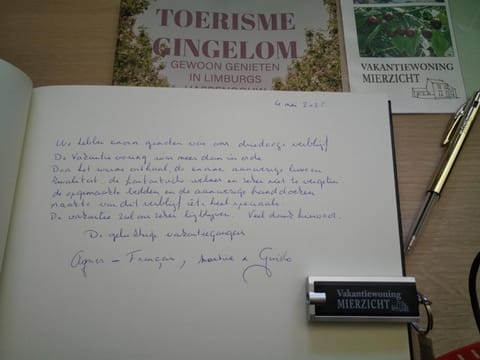 TOERISME
GINGELOM
GEWOON GENIETEN
IN LIMBURGS
HASPENGOUW
VAKANTIEWONING
MIERZICHT
4 mei 2025
We hebben enorm genoten van ons driedaags verblijf
De vakantiewoning was meer dan in orde.
Door het warme onthaal, de enorme aanwezige luxe en
kwaliteit, de fantastische wekker en zeker niet te vergeten
de opgemaakte bedden en de aanwezige handdoeken
maakte van dit verblijf iets heel speciaals.
De vakantie zal ons zeker bijblijven. Veel dank hiervoor.
De gelukkige vakantiegangers
Agnes - François, Martine & Guido
Vakantiewoning
MIERZICHT